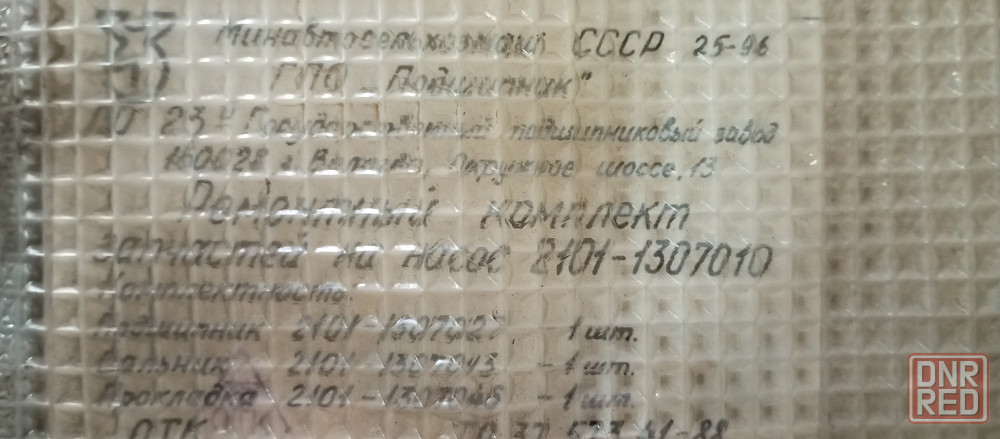 Минавтосельхозмаш СССР 25-96
ГПО „Подшипник"
ПО 23й Государственный подшипниковый завод
160028 г. Вологда, Окружное шоссе, 13
Ремонтный комплект
запчастей на насос 2101-1307010
Комплектность:
Подшипник 2101-1307027 1 шт.
Сальник 2101-1307013 - 1 шт.
Прокладка 2101-1307048 - 1 шт.
ОТК ТУ 37 523 41-88
DNR
RED